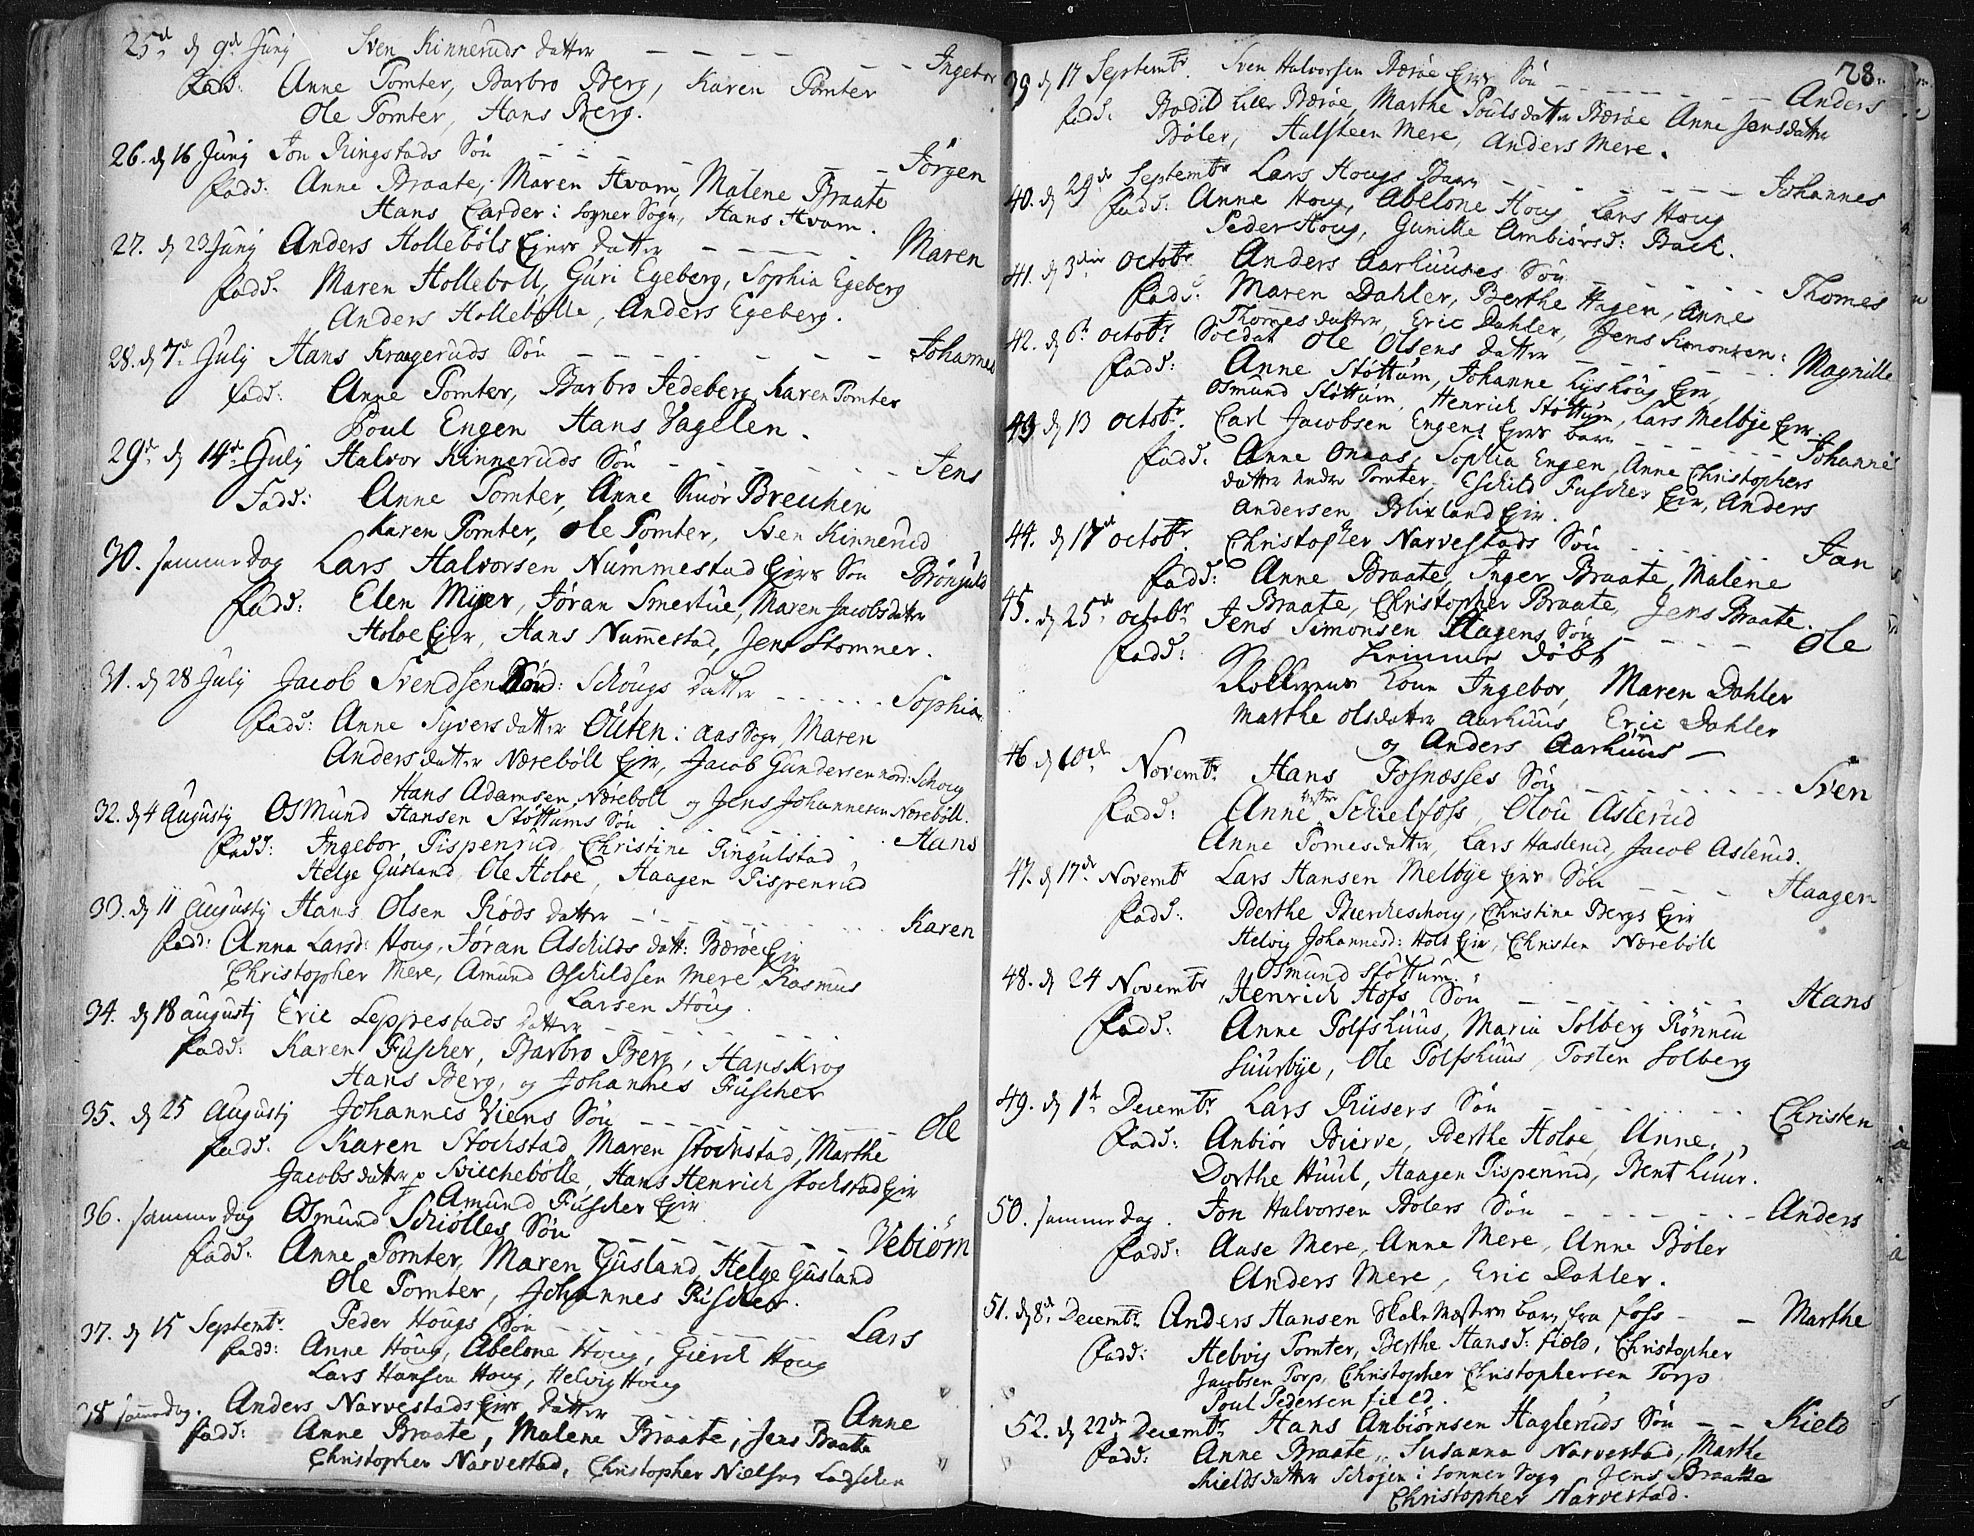 25d. d 9d Junj Sven Kinneruds datter - - - - - - Ingebor
Fad: Anne Tomter, Barbro Berg, Karen Tomter
Ole Tomter, Hans Berg.
26. d 16 Junj Jon Ringstads Søn - - - - - Jørgen
Fadd: Anne Braate, Maren Hvam, Malene Braate
Hans Carder i Sogner Sogn, Hans Hvam.
27. d 23 Junj Anders Hollebøls Ejers datter - - - - - Maren
Fadd: Maren Hollebøll, Guri Egeberg, Sophia Egeberg
Anders Hollebølle, Anders Egeberg.
28. d 7d July Hans Krageruds Søn - - - - - - Johannes
Fadd: Anne Tomter, Barbro Jedeberg Karen Tomter
Poul Engen Hans Vagelen.
29d d 14d July Halvor Kinneruds Søn - - - - - Jens
Fadd: Anne Tomter, Anne Snor Breuchen
Karen Tomter, Ole Tomter, Sven Kinnerud
30. samme dag Lars Halvorsen Nummestad Ejers Søn
Fadd: Elen Myer, Jøran Smertue, Maren Jacobsdatter
Holøe Ejer, Hans Nummestad, Jens Stomner.
31. d 28 July Jacob Svendsen Schougs datter - - - - - Sophia
Fadd: Anne Syversdatter Outen i Aas Sogn, Maren
Andersdatter Nærebøll Ejer, Jacob Gundersen nord: Schoug
Hans Adamsen Nærebøll og Jens Johannesen Nærebøll.
32. d 4 Augustj Osmund Hansen Støttums Søn - - - Hans
Fadd: Ingebor Tispenrud, Christine Tingulstad,
Helge Gusland, Ole Holøe, Haagen Tispenrud
33. d 11 Augustj Hans Olsen Røds datter - - - - - Karen
Fad: Anna Larsd: Houg, Jøran Aschilds datt: Bærøe Ejer
Christopher Mere, Amund Oschildsen Mere, Rasmus
Larsen Houg.
34. d 18 augustj Eric Leppestads datter - - - - -
Fadd: Karen Fuscher, Barbro Berg, Hans Krog
Hans Berg, og Johannes Fuscher
35. d 25 Augustj Johannes Viens Søn - - - - - - Ole
Fadd: Karen Stochstad, Maren Stochstad, Marthe
Jacobsdatter Sviechebølle, Hans Henrich Stochstad Ejer
Amund Fuscher Ejer
36. samme dag Osmund Schiølles Søn - - - - - Vebiørn
Fadd: Anne Tomter, Maren Gusland, Helge Gusland
Ole Tomter, Johannes Fuscher.
37. d 15 Septembr. Peder Hougs Søn - - - - - Lars
Fadd: Anne Houg, Abelone Houg, Giertrud Houg
Lars Hansen Houg, Helvig Houg
38 samme dag. Anders Narvestads Ejers datter - - - - Anne
Fadd: Anne Braate, Malene Braate, Jens Braate
Christopher Narvestad, Christopher Nielsen
28.
39 d 17 Septembr. Sven Halvorsen Bærøe Ejers Søn - - - - - Anders
Fadd: Bodild Lille Bærøe, Marthe Poulsdatter Bærøe Anne Jensdatter
Bøler, Halsteen Mere, Anders Mere.
40. d 29de Septembr Lars Hougs Barn - - - - - - Johannes
Fadd: Anne Houg, Abelone Houg, Lars Houg
Peder Houg, Gunille Ambiørsd: Bach.
41. d 3die octobr Anders Aarhuuses Søn - - - - - Thomes
Fadd: Maren Dahler, Berthe Hagen, Anne
Thomes datter, Eric Dahler, Jens Simonsen:
42. d 6t. octobr. Soldat Ole Olsens datter - - - - - Magnille
Fadd: Anne Støttum, Johanne Lyshoug Ejer,
Osmund Støttum, Henrich Støttum, Lars Melbye Ejer.
43 d 13 octobr. Carl Jacobsen Engens Ejers barn - - - - Johannes
Fadd: Anne Onaas, Sophia Engen, Anne Christophers
datter Tomter, Eschild Fuscher Ejer, Anders
Andersen Blixland Ejer.
44. d 17d octobr Christopher Narvestads Søn - - - - - Jan
Fadd: Anne Braate, Inger Braate, Malene
Braate, Christopher Braate, Jens Braate.
45. d 25d octobr Jens Simonsen Hagens Søn - - - - Ole
hiemme døbt
Fadd: Kone Ingebor, Maren Dahler
Marthe Olsdatter Aarhuus, Eric Dahler
og Anders Aarhuus -
46 d 10d Novembr. Hans Fosnæsses Søn - - - - - Sven
Fadd: Anne Schielfoss, Olou Aslerud
Anne Tomesdatter, Lars Haslerud, Jacob Aslerud.
47. d 17de Novembr Lars Hansen Melbye Ejers Søn - - - Haagen
Fadd: Berthe Bierkeschoug, Christine Bergs Ejer
Helvig Johannesd: Hold Ejer, Christen Nærebøll
Osmund Støttum.
48. d 24 Novembr Henrich Hofs Søn - - - - - Hans
Fadd: Anne Tolfshuus, Maria Solberg Rønneu
Huurbye, Ole Tolfshuus, Tosten Solberg
49. d 1t Decembr. Lars Rusers Søn - - - - - Christen
Fadd: Anbiør Bierve, Berthe Holøe, Anne
Dorthe Huul, Haagen Tispenrud, Bent Huur.
50. samme dag. Jon Halvorsen Bølers Søn - - - - - Anders
Fadd: Aase Mere, Anne Mere, Anne Bøler
Anders Mere, Eric Dahler.
51. d 8d. Decembr. Anders Hansen Skolemesters barn fra foss - - Marthe
Fadd: Helvig Tomter, Berthe Hansd: field, Christopher
Jacobsen Torp, Christopher Christophersen Torp
Poul Pedersen field.
52. d 22de Decembr Hans Anbiørnsen Hagleruds Søn - - Kield
Fadd: Anne Braate, Susanna Narvestad, Marthe
Kieldsdatter Schogen i Sonner Sogn, Jens Braate
Christopher Narvestad.